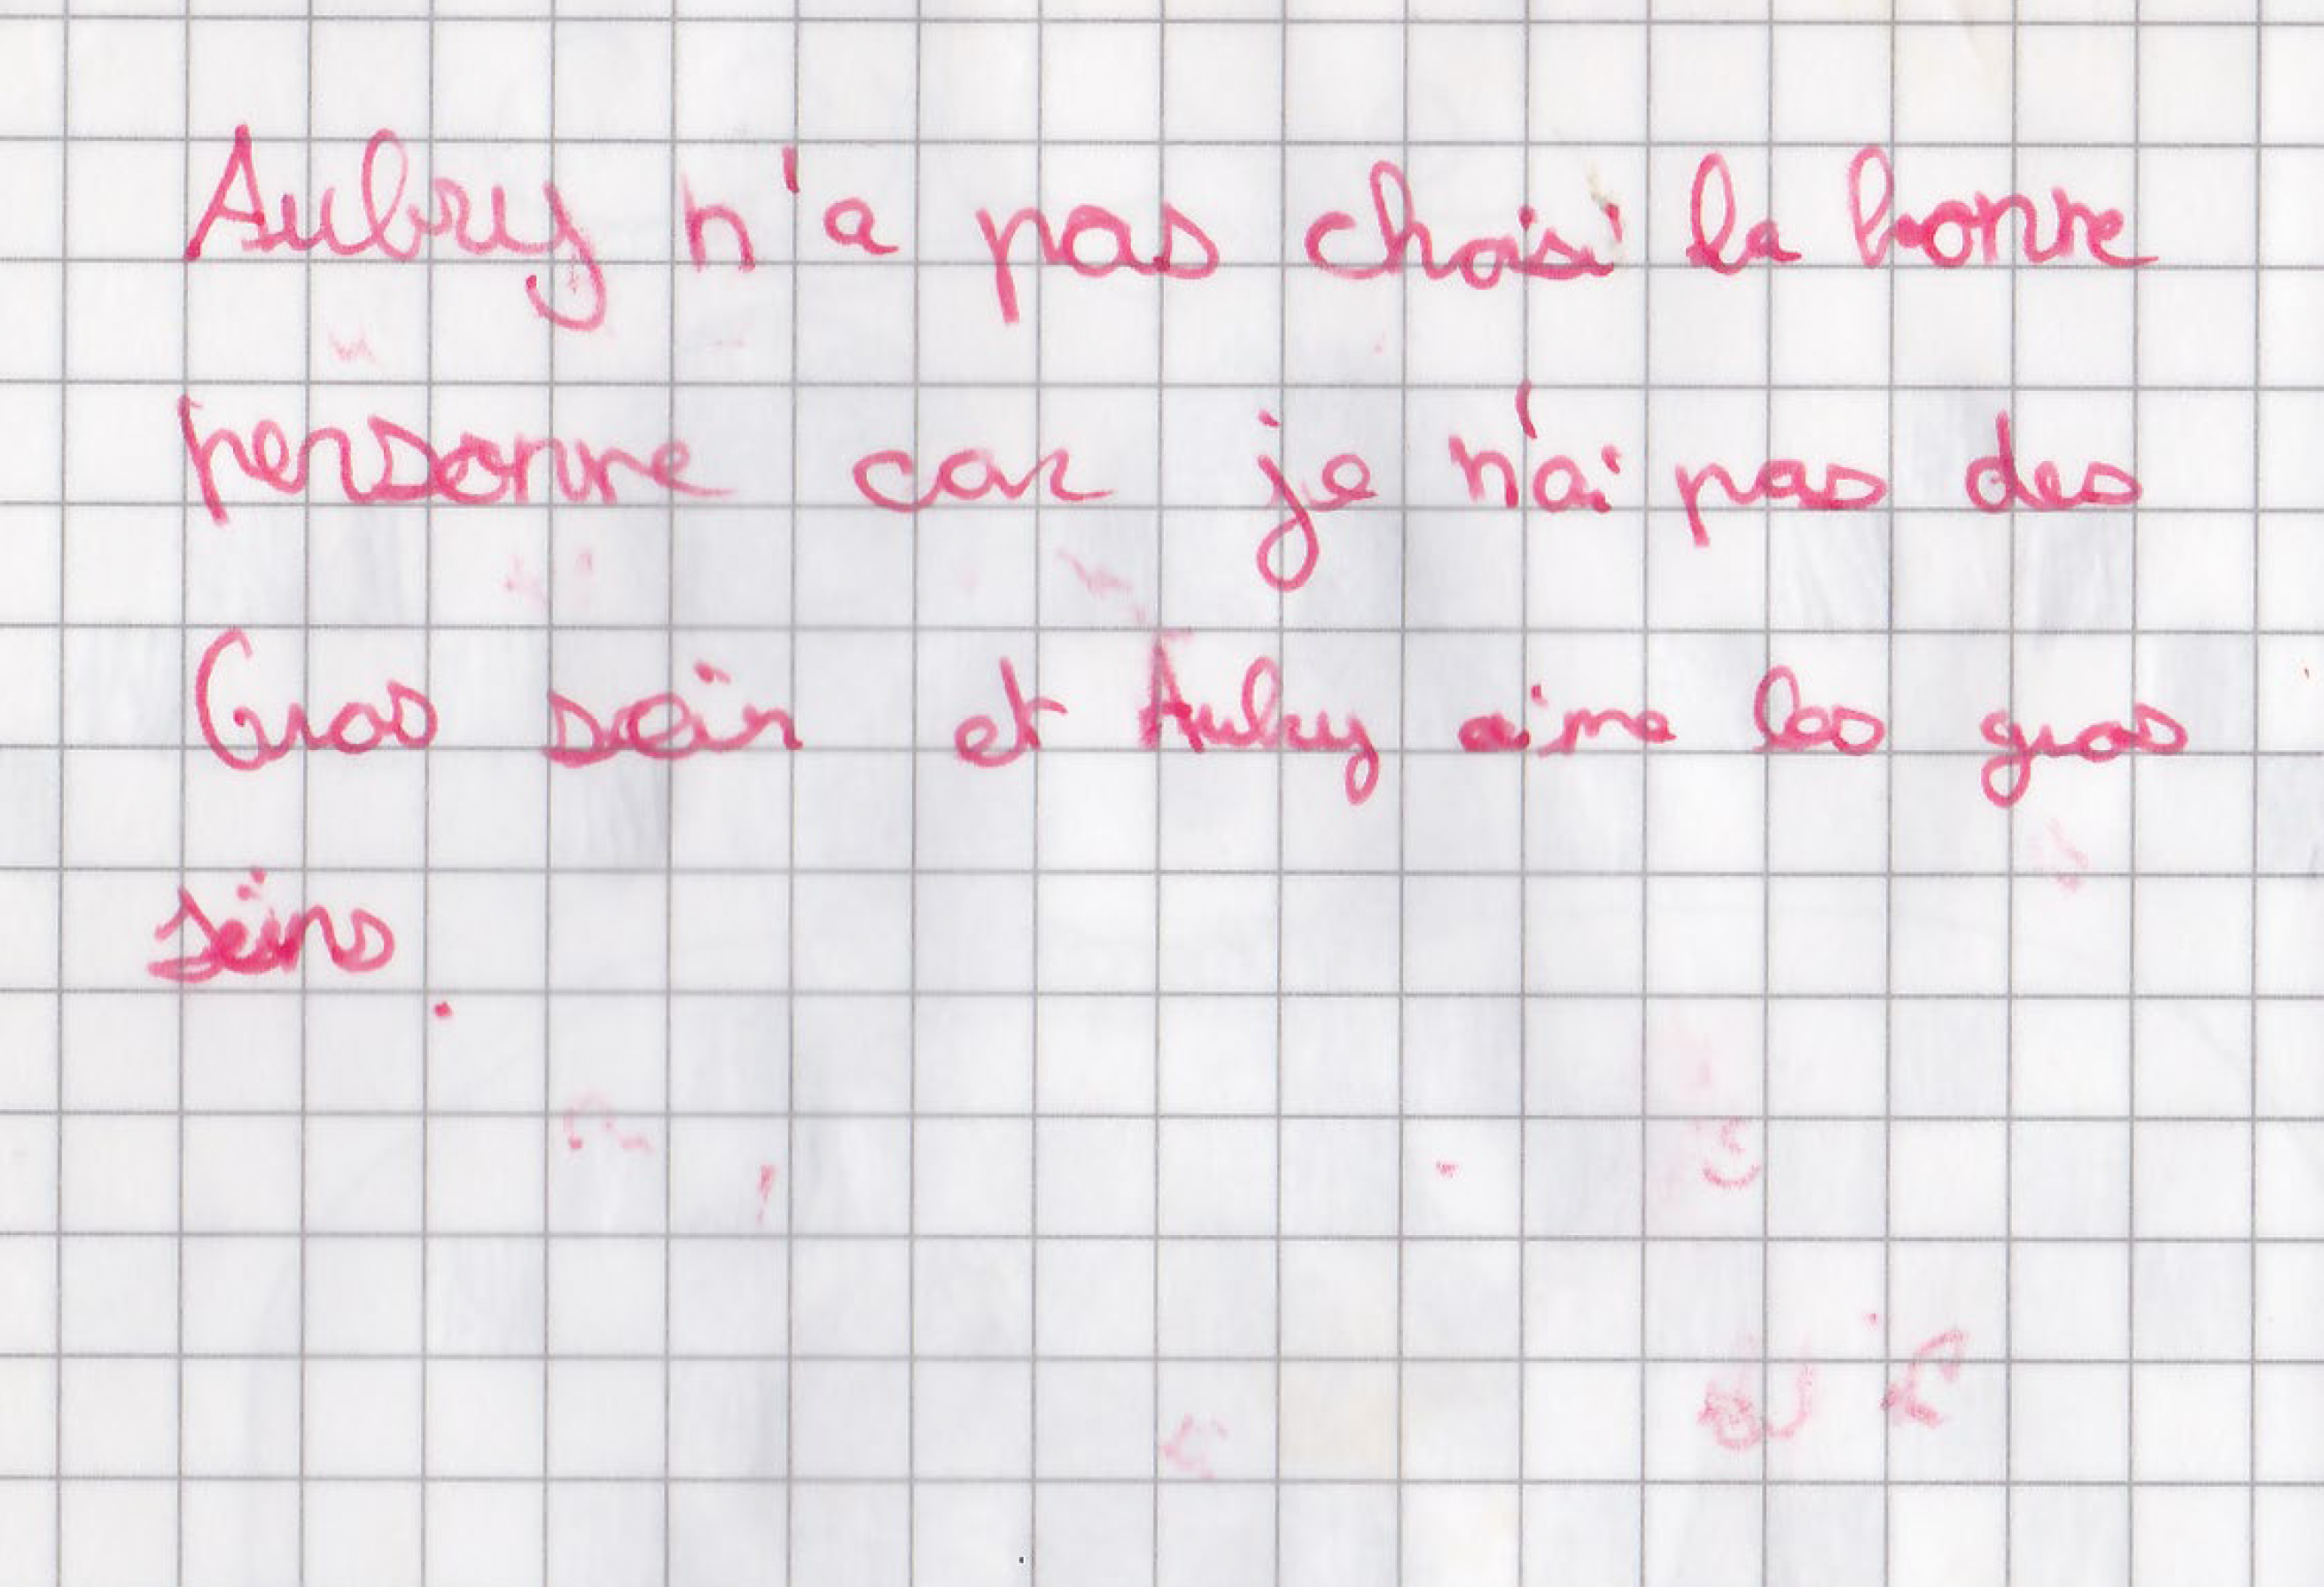 Aubry n'a pas choisi la bonne
personne car je n'ai pas des
Gros sein et Aubry aime les gros
seins.